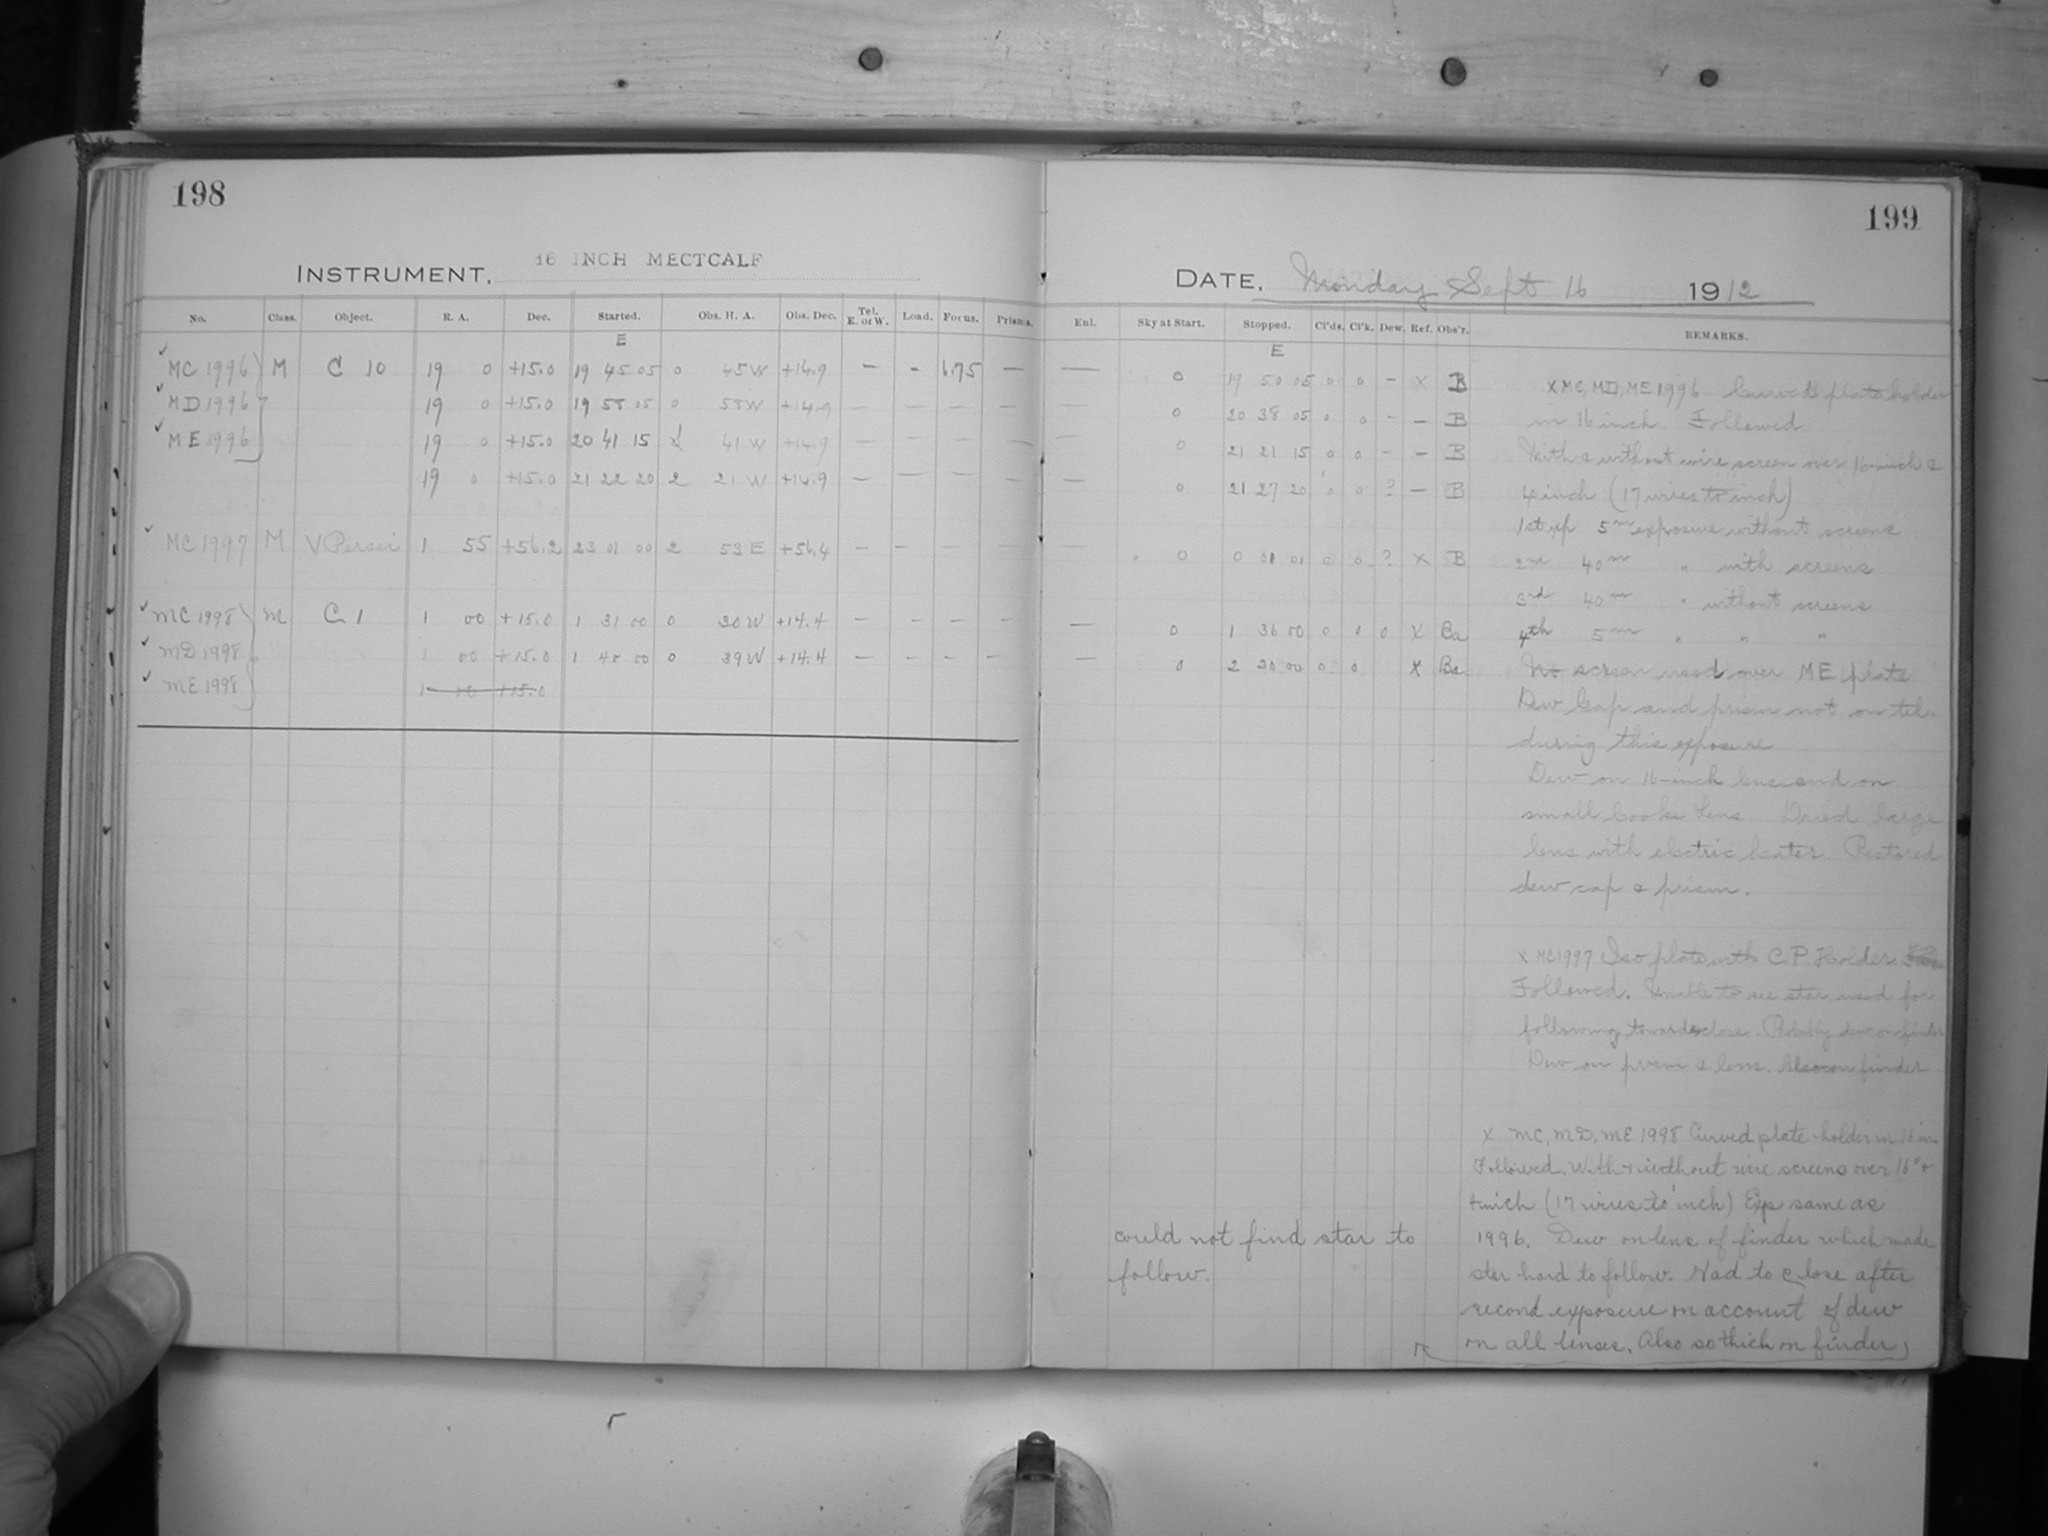 198
INSTRUMENT, 16 INCH MECTCALF
No. Class. Object. R. A. Dec. Started. Obs. H. A. Obs. Dec. Tel. E. or W. Load. Focus. Prisms.
E
MC 1996 M C 10 19 0 +15.0 19 45 05 0 45 W +14.9 — - 6.75 —
MD 1996 19 0 +15.0 19 58 05 0 58 W +14.9 — — — —
ME 1996 19 0 +15.0 20 41 15 1 41 W +14.9 — — — —
19 0 +15.0 21 22 20 2 21 W +14.9 — — — —
MC 1997 M V Persei 1 55 +56.2 23 01 00 2 53 E +56.4 — — — —
MC 1998 M C 1 1 00 +15.0 1 31 00 0 30 W +14.4 — — — —
MD 1998 1 00 +15.0 1 40 00 0 39 W +14.4 — — — —
ME 1998 1 00 +15.0
199
DATE, Monday Sept 16 1912
Enl. Sky at Start. Stopped. Cl'ds. Cl'k. Dew. Ref. Obs'r. REMARKS.
E
— 0 19 50 05 0 0 – X B
— 0 20 38 05 0 0 – – B
— 0 21 21 15 0 0 – – B
— 0 21 27 20 0 0 ? – B
— 0 0 01 01 0 0 ? X B
— 0 1 36 00 0 0 0 X Ca
— 0 2 20 00 0 0 X Ba
X MC, MD, ME 1996 Curved plate holder
in 16 inch Followed
With & without wire screen over 16-inch &
4 inch (17 wires to inch)
1st exp 5m exposure without screens
2nd 40m " with screens
3rd 40m " without screens
4th 5m " " "
No screen used over ME plate
Dew Cap and prism not on tel.
during this exposure
Dew on 16-inch lens and on
small Cooke Lens. Dried large
lens with electric heater. Restored
dew cap & prism.
X MC1997 Iso plate with C. P. Holder
Followed. Unable to see star used for
following towards close. Probably dew on finder
Dew on prism & lens. Also on finder
X MC, MD, ME 1998 Curved plate holder in 16 in
Followed. With + without wire screens over 16" +
4 inch (17 wires to inch) Exp same as
1996. Dew on lens of finder which made
star hard to follow. Had to close after
second exposure on account of dew
on all lenses. Also so thick on finder,
could not find star to
follow.